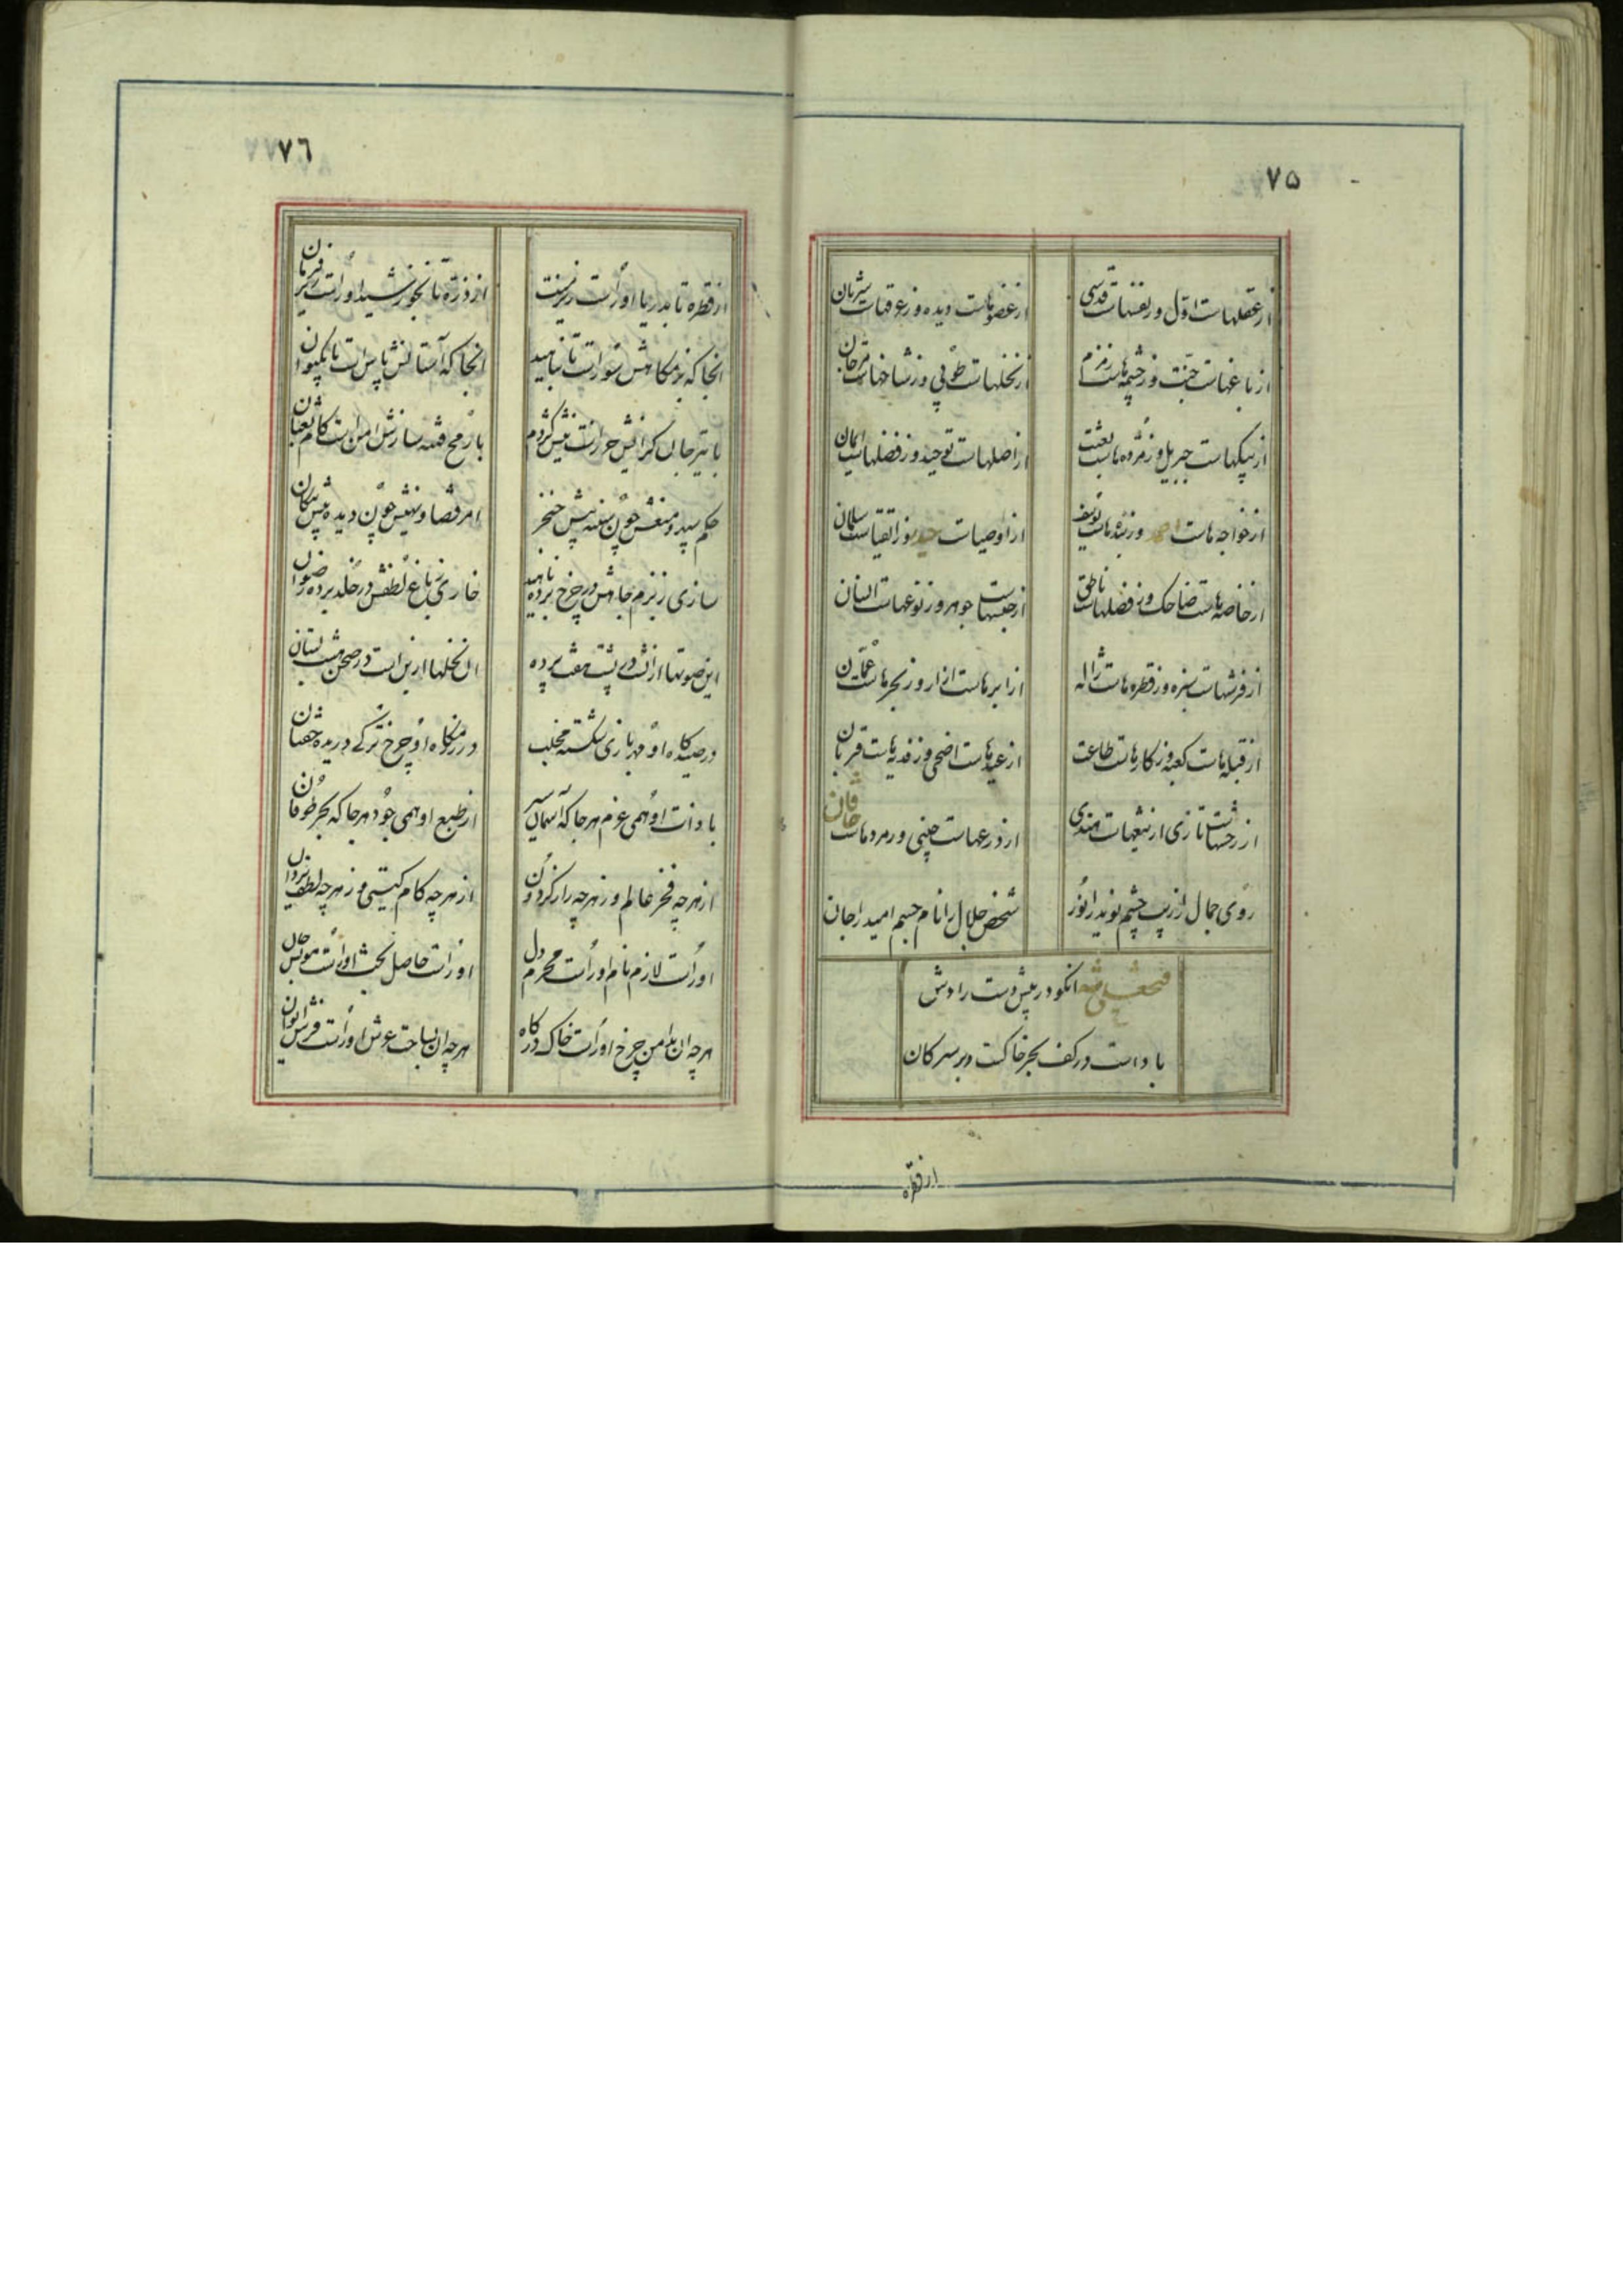 ۷۵
از عقلهاست اوّل وز نفسهاست قدسی
از عضوهاست دیده وز عرقهاست شریان
از باغهاست جنّت وز چشمه هاست زمزم
از نخلهاست طوبی وز شاخهاست مرجان
از پیکهاست جبریل وز مژده هاست بعثت
از اصلهاست توحید وز فضلهاست ایمان
از خواجه هاست احمد وز بنده هاست یوسف
از اوصیاست حیدر وز اتقیاست سلمان
از خاصه هاست ضاحک وز فضلهاست ناطق
از جنسهاست جوهر وز نوعهاست انسان
از فرشهاست سبزه وز قطره هاست ژاله
از ابرهاست آزار وز بحرهاست عمّان
از قبله هاست کعبه وز کارهاست طاعت
از عیدهاست اضحی وز فدیه هاست قربان
از رخشهاست تازی از تیغهاست هندی
از درعهاست چینی وز مردماست خاقان
روی جمال را زیب چشم نوید را نور
شخص جلال را نام جسم امید را جان
فتحعلی شه انکو در پیش دست رادش
باد است در کف بحر خاکست بر سر کان
از قطره
۷٦
از قطره تا بدریا اوراست زیر منت
از ذرّه تا بخورشید اوراست زیر فرمان
انجا که بزمکاهش سوراست تا بناهید
انجا که آستانش پاس است تا بکیوان
با تیر جان کزایش حرزاست نیش کژدم
با رمح فتنه سازش امن است کام ثعبان
حکم سپهر و منعش چون سینه پیش خنجر
امر قضا و نهیش چون دیده پیش پیکان
سازی ز بزم جاهش در چرخ برده ناهید
خاری ز باغ لطفش در خلد برده رضوان
این صوتها از انست در پشت هفت پرده
ان نخلها ازین است در صحن هشت بستان
در صیدکاه او مهر بازی شکسته مخلب
در رزمکاه او چرخ ترکی دریده خفتان
با ذات او همی عزم هر جا که آسمان سیر
از طبع او همی جود هر جا که بحر طوفان
از هر چه فخر عالم وز هر چه راز کردون
از هر چه کام کیتی وز هر چه لطف یزدان
اوراست لازم نام اوراست محرم دل
اوراست حاصل بخت اوراست مونس جان
هر چه ان بدامن چرخ اوراست خاک درکاه
هر چه ان بساحت عرش اوراست فرش ایوان